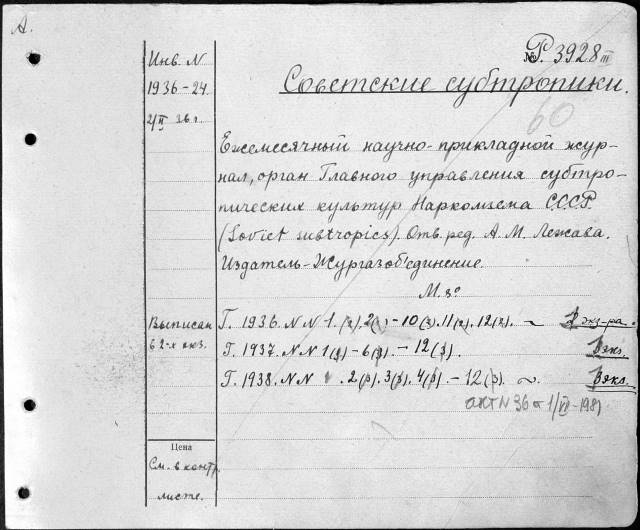 А.
Инв. N
1936-24.
2/II 36 г.
№ Р. 3928 III
Советские субтропики.
60
Ежемесячный научно-прикладной жур-
нал, орган Главного управления субтро-
пических культур Наркомзема СССР
(Soviet subtropics). Отв. ред. А. М. Лежава.
Издатель - Жургазоб'единение.
М. 8°
Выписан
в 2-х экз.
Г. 1936. N N 1. 2 - 10 (3). 11(2). 12(2). ~ экз-ра.
Г. 1937. N N 1 - 6 - 12 экз.
Г. 1938. N N . 2 . 3 . 4 - 12 . ~ экз.
акт N 36 от 1/VI-1981
Цена
См. в контр.
листе.